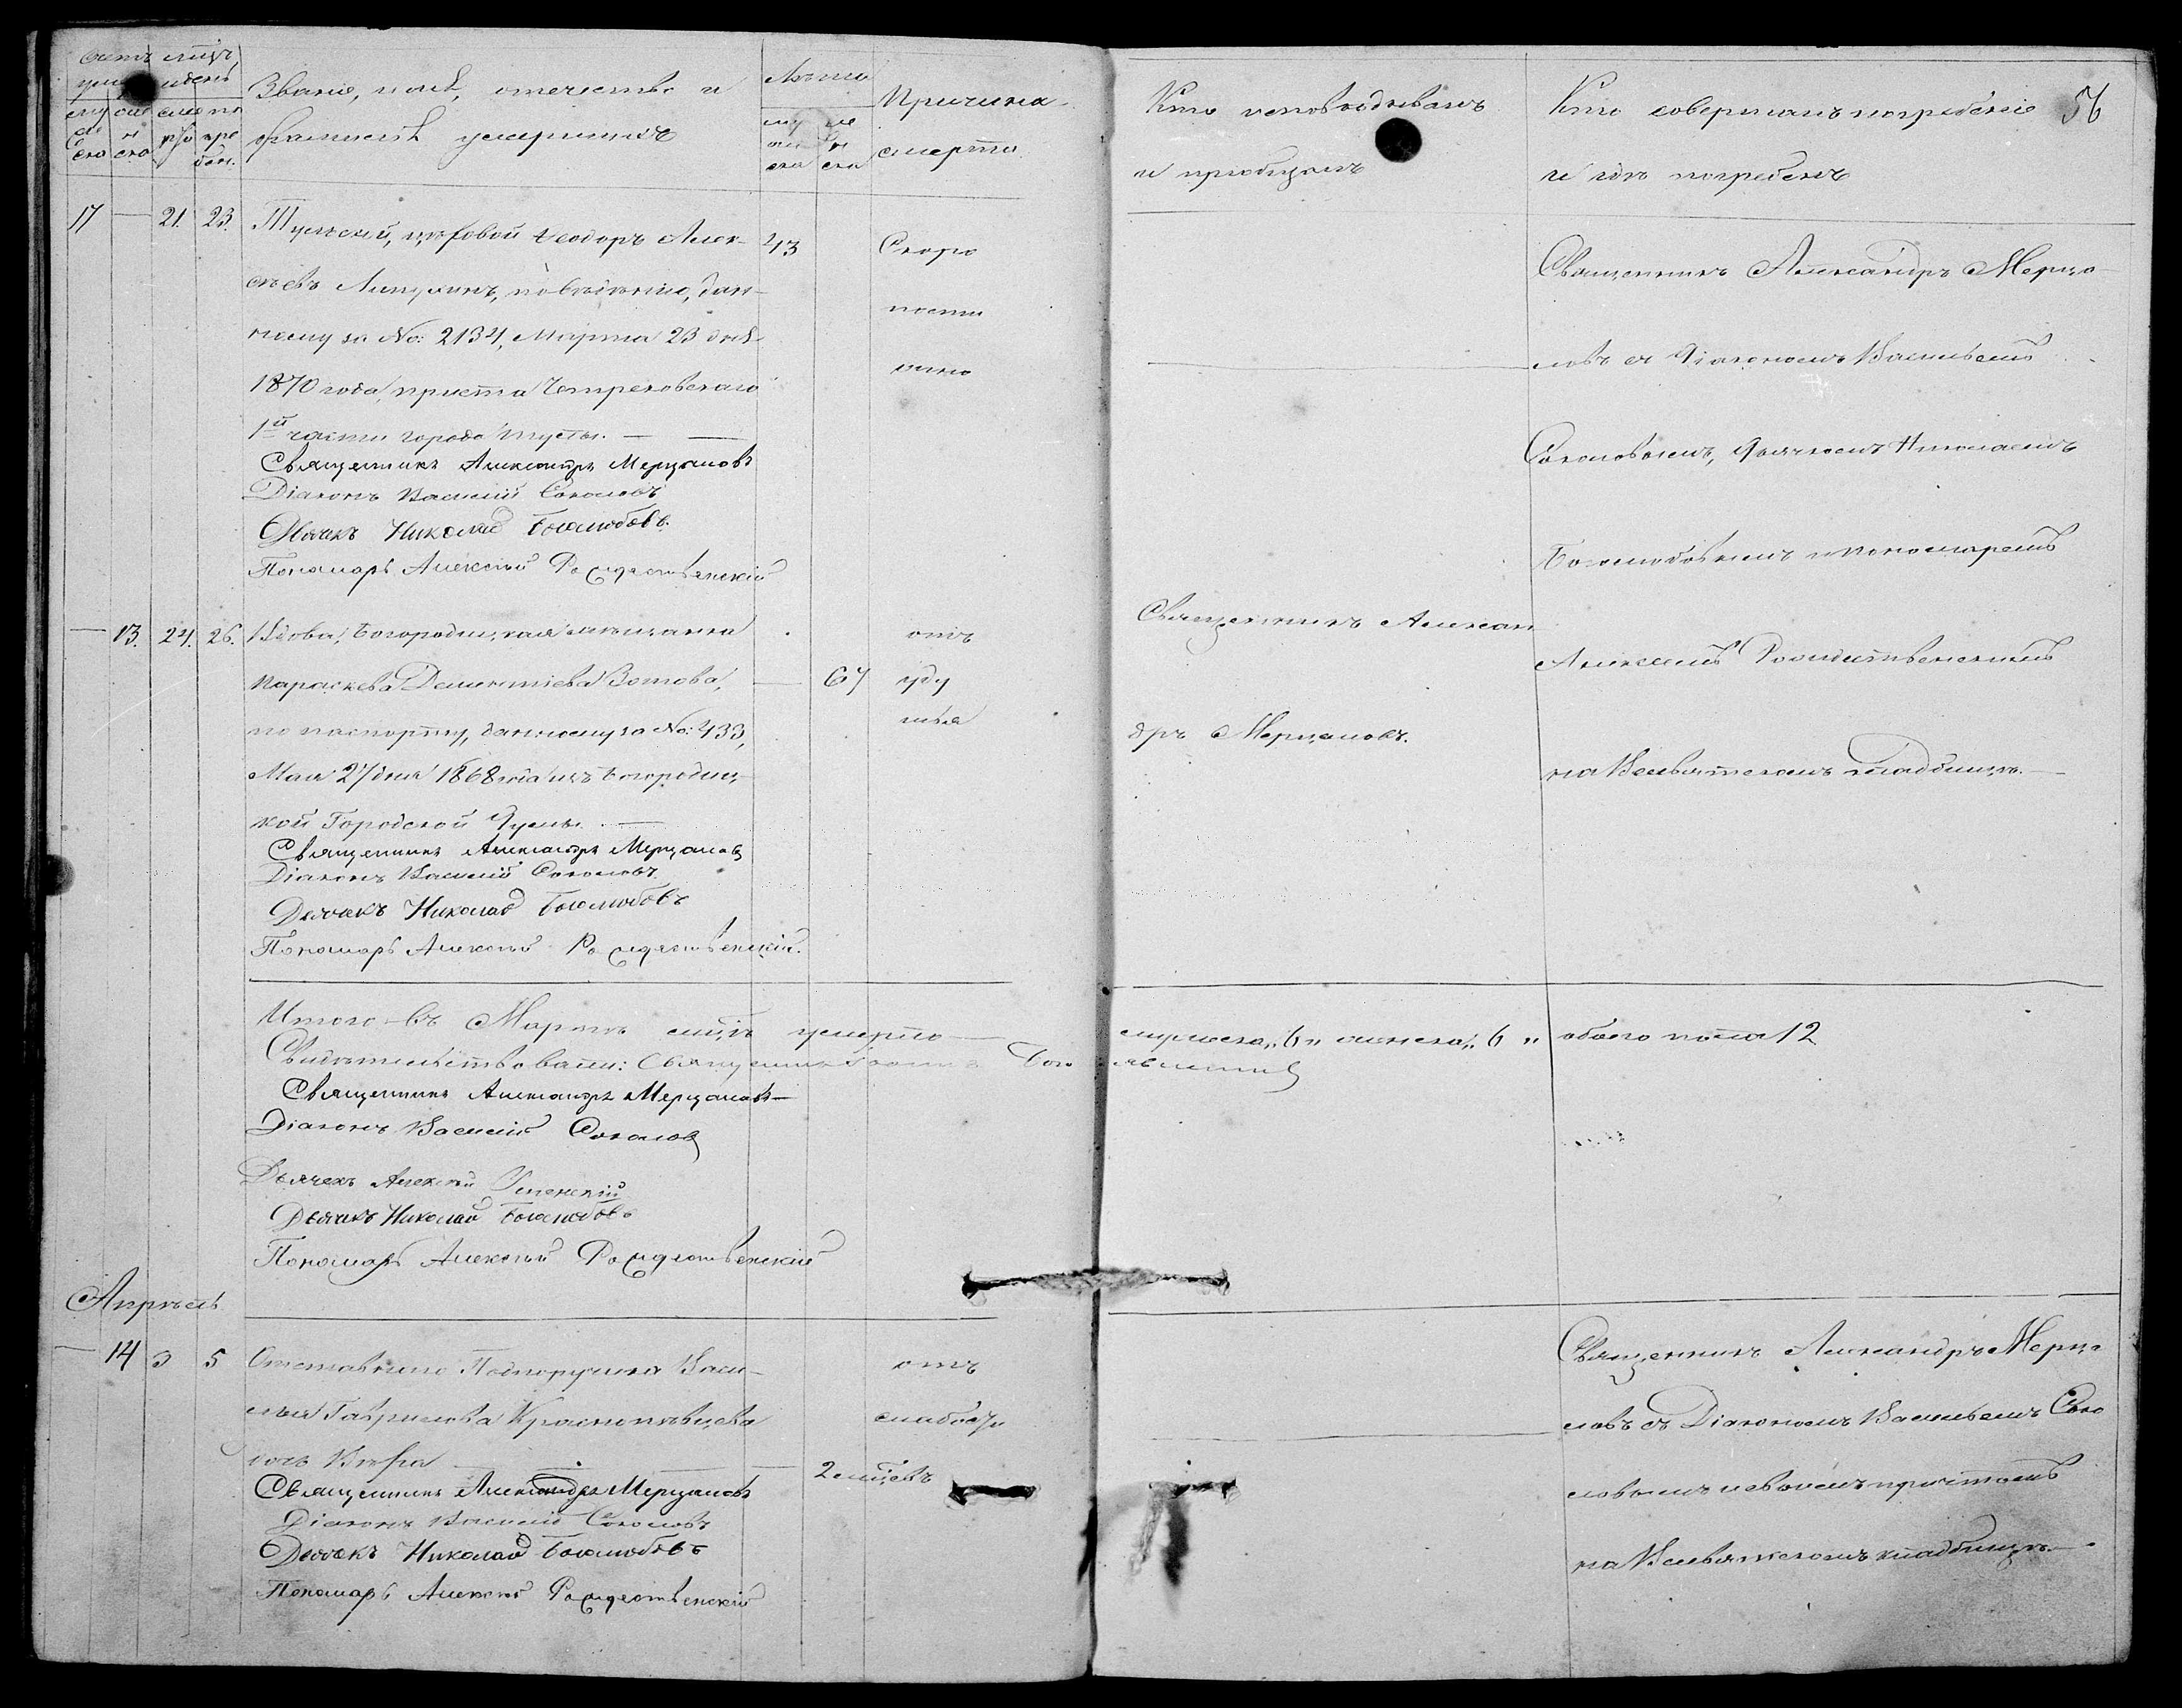 Счетъ
Мѣсяцъ и день
Званіе, имя, отечество и
фамилія умершихъ
Лѣта
Причина
смерти
Кто исповѣдывалъ
и пріобщалъ
Кто совершалъ погребеніе
и гдѣ погребенъ
56
17 — 21. 23.
Тульскій, цѣховой Ѳеодоръ Алек-
сѣевъ
ному за No: 2134, Марта 23 дня
1870 года, пристава
1й части города Тулы. —
Священникъ Александръ Мерцаловъ
Діаконъ Василій Соколовъ
Дьячекъ Николай Боголюбовъ.
Пономарь Алексѣй Рождественскій
43
Скоро
постижно
Священникъ Александръ Мерца-
ловъ съ Діакономъ Васильемъ
Соколовымъ, Дьячкомъ Николаемъ
Боголюбовымъ и пономаремъ
Алексѣемъ Рождественскимъ
на Всесвятскомъ кладбищѣ. —
— 13. 24. 26.
Вдова, Богородицкая мѣщанка
Параскева Дементіева Зотова,
по паспорту, данному за No: 433,
Мая 27 дня 1868 года изъ Богородиц-
кой Городской Думы. —
Священникъ Александръ Мерцаловъ
Діаконъ Василій Соколовъ
Дьячекъ Николай Боголюбовъ
Пономарь Алексѣй Рождественскій.
— 67
отъ
удушья
Священникъ Алексан
дръ Мерцаловъ.
Итого въ Мартѣ мѣсяцѣ умерло — мужеска „6„ женска „6„ обоего пола 12
Свидѣтельствовали:
Священникъ Александръ Мерцаловъ —
Діаконъ Василій Соколовъ
Дьячекъ Алексѣй Успенскій
Дьячекъ Николай Боголюбовъ
Пономарь Алексѣй Рождественскій
Апрѣль
— 14 3 5
Отставнаго Подпоручика Васи-
лья Гаврилова Краснопѣвцева
дочь Вѣра —
Священникъ Александръ Мерцаловъ
Діаконъ Василій Соколовъ
Дьячекъ Николай Боголюбовъ
Пономарь Алексѣй Рождественскій
2 мѣсяцевъ
отъ
слабости
Священникъ Александръ Мерца
ловъ съ Діакономъ Васильемъ Соко
ловымъ и своимъ причтомъ
на Всесвятскомъ кладбищѣ. —